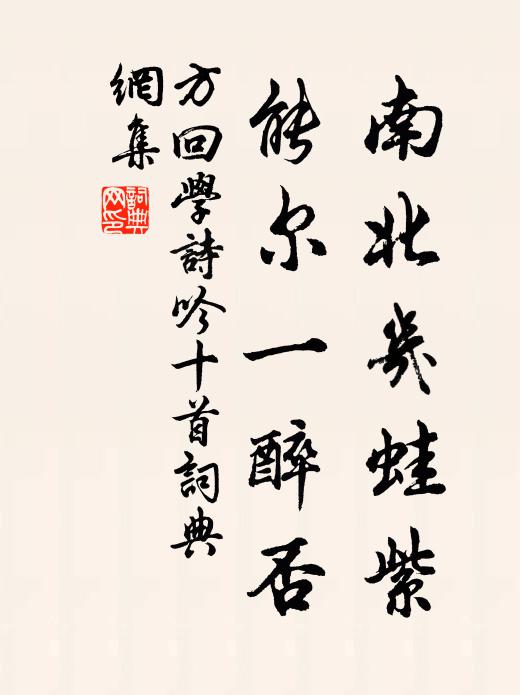 南北幾蛙紫
能尔一醉否
方回學詩吟十首詞典
網集
詞典網印